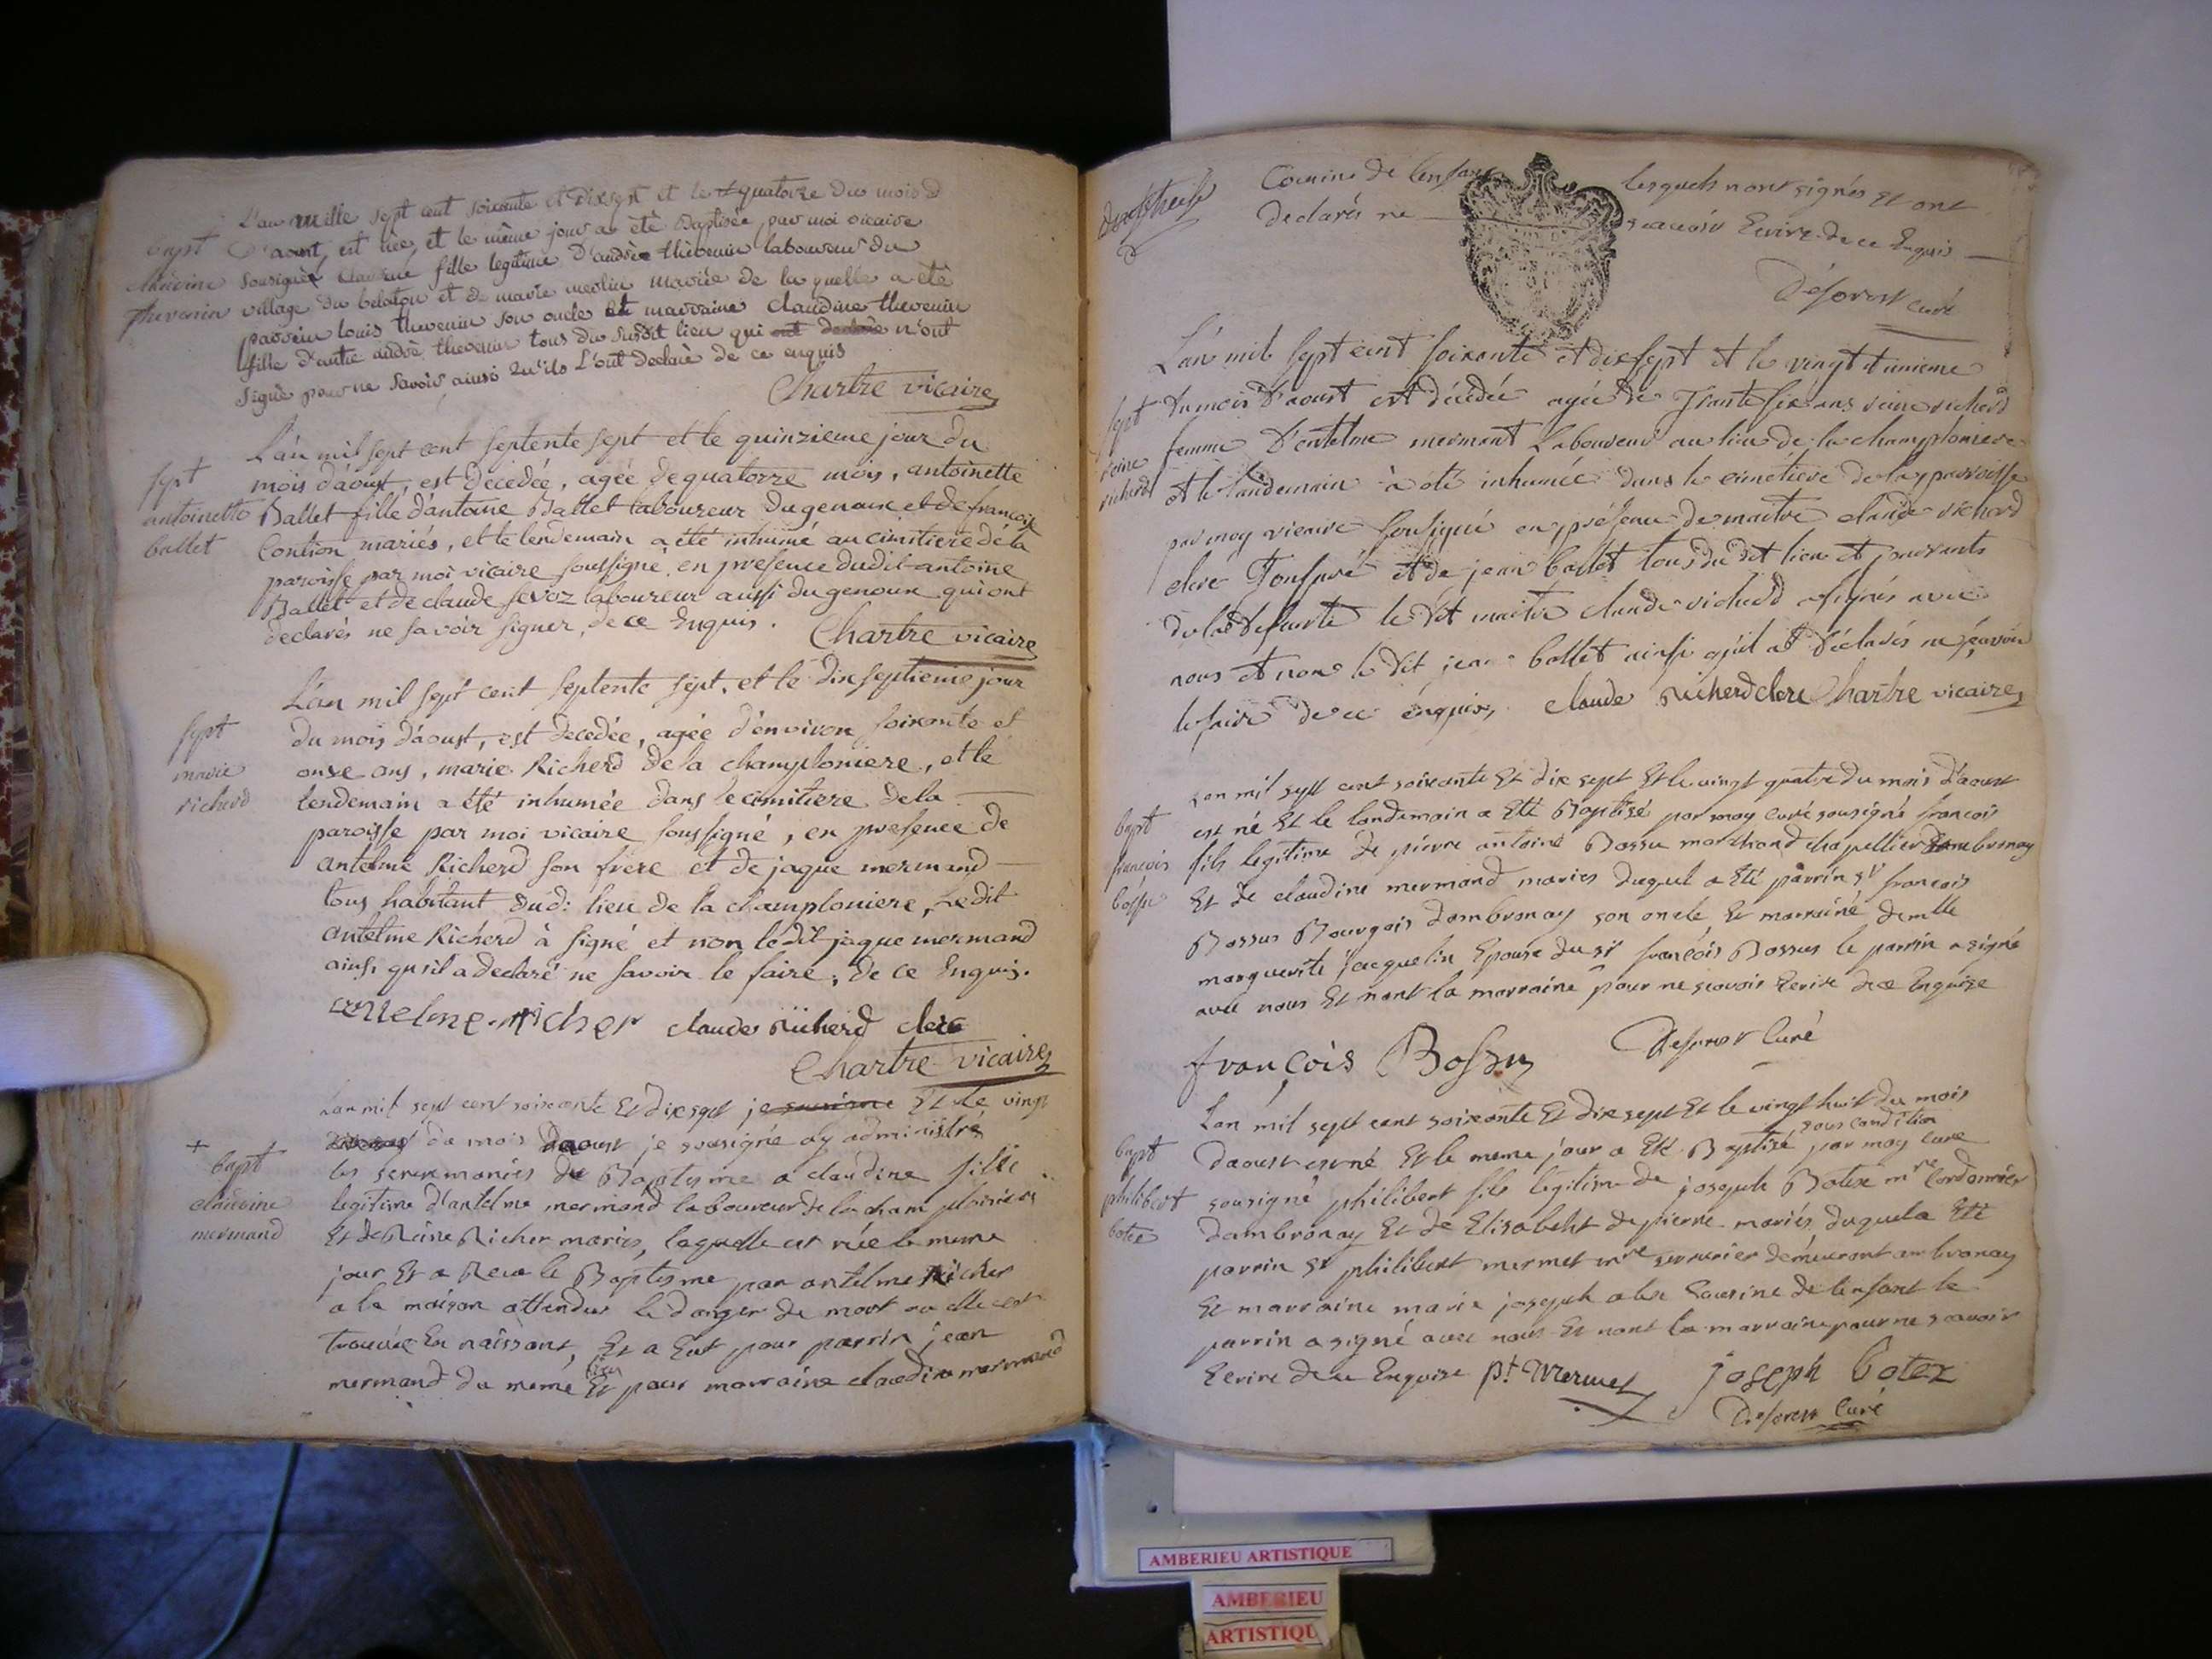 L'an mille sept cent soixante et dixsept et le quatorze du mois d
bapt
claudine
thevenin
d'aoust, est née et le même jour a été Baptisée par moi vicaire
sousigné claudine fille legitime d'andré thevenin laboureur du
village du belaton et de marie merlin mariée de la quelle a été
parrein louis thevenin son oncle et marraine claudine thevenin
fille d'autre andré thevenin tous du susdit lieu qui ont declaré n'ont
signé pour ne savoir ainsi qu'ils l'ont declaré de ce enquis
Chartre vicaire
L'an mil sept cent septente sept et le quinzieme jour du
sept
antoinette
ballet
mois d'aoust, est decedée, agée de quatorze mois, antoinette
Ballet fille d'antoine Ballet laboureur du genoux et de françoise
Contion mariés, et le lendemain a été inhumé au cimitiere de la
paroisse par moi vicaire soussigné, en presence dudit antoine
Ballet et de claude sevoz laboureur aussi du genoux qui ont
declarés ne savoir signer, de ce Enquis.
Chartre vicaire
L'an mil sept cent septente sept, et le dixseptieme jour
sept
marie
richerd
du mois d'aoust, est decedée, agée d'environ soixante et
onze ans, marie Richerd de la champloniere, et le
lendemain a été inhumée dans le cimitiere de la
paroisse par moi vicaire soussigné, en presence de
antelme Richerd son frere et de jaque mermand
tous habitant dud: lieu de la champloniere, Ledit
antelme Richerd à signé et non le dit jaque mermand
ainsi qu'il a declaré ne savoir le faire, de ce Enquis.
antelme richer claude Richerd clerc
Chartre vicaire
Lan mil sept cent soixante Et dix sept je sousigne Et le vingt
+
bapt
claudine
mermand
du mois daoust je sousigné ay administré
les seremonies du Baptisme a claudine fille
legitime d'antelme mermand laboureur de la champloniere
Et de Reine Richer mariés, laquelle est née le meme
jour Et a Recu le Baptisme par antelme Richer
a la maison attendu le danger de mort ou elle est
trouvée En naissant, Et a Eut pour parrin jean
mermand du meme lieu Et pour marraine claudine mermand
Cousine de lenfant lesquels nont signés Et ont
declarés ne scavoir Ecrire de ce Enquis
Deforest curé
L'an mil sept cent soixante et dixsept et le vingt t unieme
sept
reine
richerd
du mois d'aoust est décédée agée de trante six ans reine richerd
femme d'antelme mermant Laboureur au lieu de la champloniere
et le landemain à été inhumée dans le cimetiere de la parroisse
par moy vicaire sousigné en présence de maitre claude richerd
clerc Tonsuré et de jean ballet tous du dit lieu et parents
de la defunte le dit maitre claude richerd a signés avec
nous et non le dit jean ballet ainsi qu'il at déclarés ne sçavoir
le faire de ce enquis, claude Richerd clerc Chartre vicaire
Lan mil sept cent soixante Et dix sept Et le vingt quatre du mois d'aoust
bapt
françois
bossu
est né Et le landemain a Eté Baptisé par moy curé sousigné francois
fils legitime de pierre antoine Bossu marchand chapellier dambronay
Et de claudine mermand mariés duquel a Eté parrin sr francois
Bossus Bourgois dambronay son oncle, Et marraine demlle
marguerite jacquelin Epouse du sr francois Bossus le parrin a signé
avec nous Et nont la marraine pour ne scavoir Ecrire de ce Enquise
françois Bossu
Deforest Curé
Lan mil sept cent soixante Et dix sept Et le vingt huit du mois
bapt
philibert
botex
daoust est né Et le meme jour a Eté Baptisé sous condition par moy curé
sousigné philibert fils legitime de joseph Botex mre Cordonnier
dambronay Et de Elisabeht depierre mariés, duquel a Eté
parrin sr philibert mermet mre serrurier demeurant ambronay
Et marraine marie joseph Cousine de lenfant le
parrin a signé avec nous Et nont la marraine pour ne scavoir
Ecrire de ce Enquise pt Mermet joseph botex
Deforest Curé
AMBERIEU ARTISTIQUE
AMBERIEU
ARTISTIQU